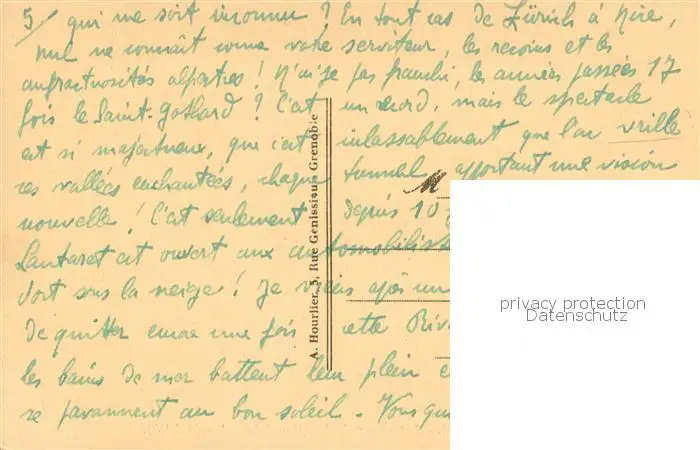 5/ qui me soit inconnu ? En tout cas de Zürich à Nice,
nul ne connaît comme votre serviteur, les recoins et les
anfractuosités alpestres ! N'ai je pas franchi, les années passées 17
fois le Saint-Gothard ? C'est un record, mais le spectacle
est si majestueux, que c'est inlassablement que l'on vrille
ces vallées enchantées, chaque tunnel apportant une vision
nouvelle ! C'est seulement depuis 10
Lautaret est ouvert aux automobilist
dort sous la neige ! Je viens après un
de quitter encore une fois cette Riv
les bains de mer battent leur plein e
se pavannent au bon soleil. Vous qu
M
A. Hourlier, 3, Rue Génissieu, Grenoble
privacy protection
Datenschutz